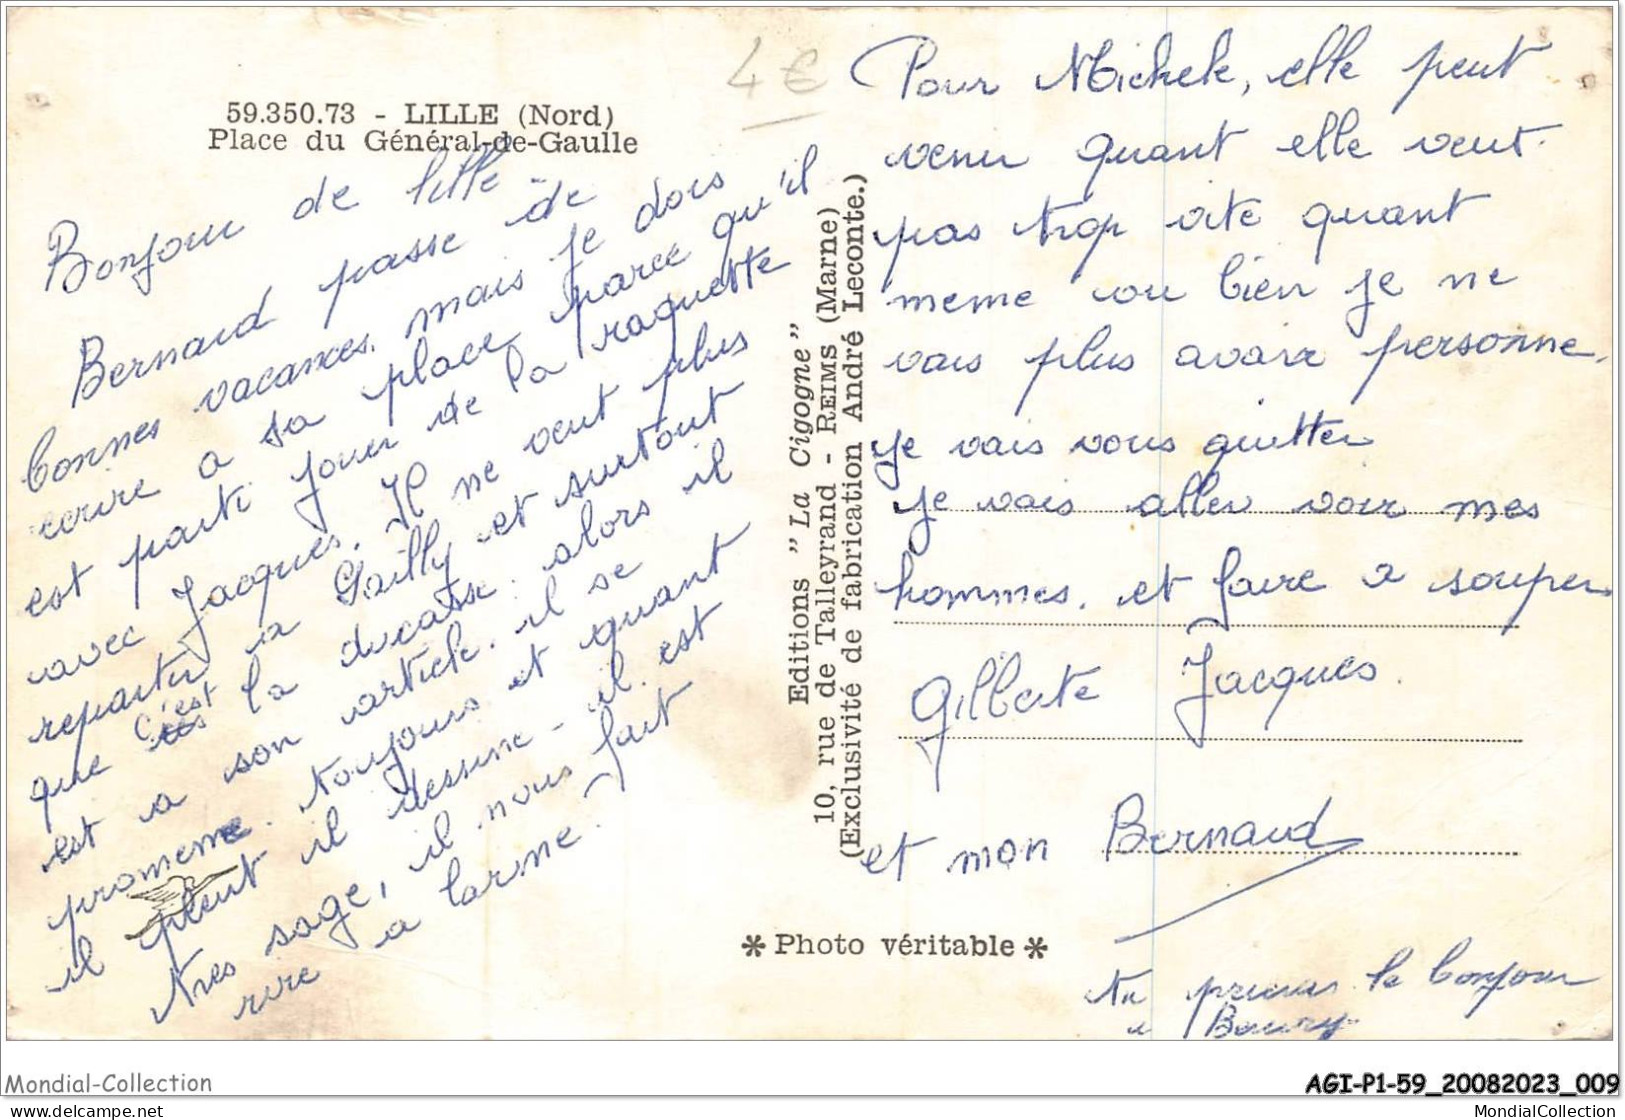 59.350.73 - LILLE (Nord)
Place du Général-de-Gaulle
4 €
Bonjour de lille
Bernard passe de
bonnes vacances. mais je dois
ecrire a sa place parce qu'il
est parti jouer de la raquette
avec Jacques. Il ne veut plus
repartir a Gailly et surtout
que c'est la ducasse. alors il
est a son article. il se
promene toujours et quant
il pleut il dessine - il est
tres sage, il nous fait
rire a larme.
Editions "La Cigogne"
10, rue de Talleyrand - REIMS (Marne)
(Exclusivité de fabrication André Leconte.)
Pour Michele, elle peut
venir quant elle veut.
pas trop vite quant
meme ou bien je ne
vais plus avair personne.
je vais vous quitter
je vais aller voir mes
hommes. et faire a souper
Gilberte Jacques.
et mon Bernard
* Photo véritable *
Tu le bonjour
a
Mondial-Collection
AGI-P1-59_20082023_009
www.delcampe.net
MondialCollection